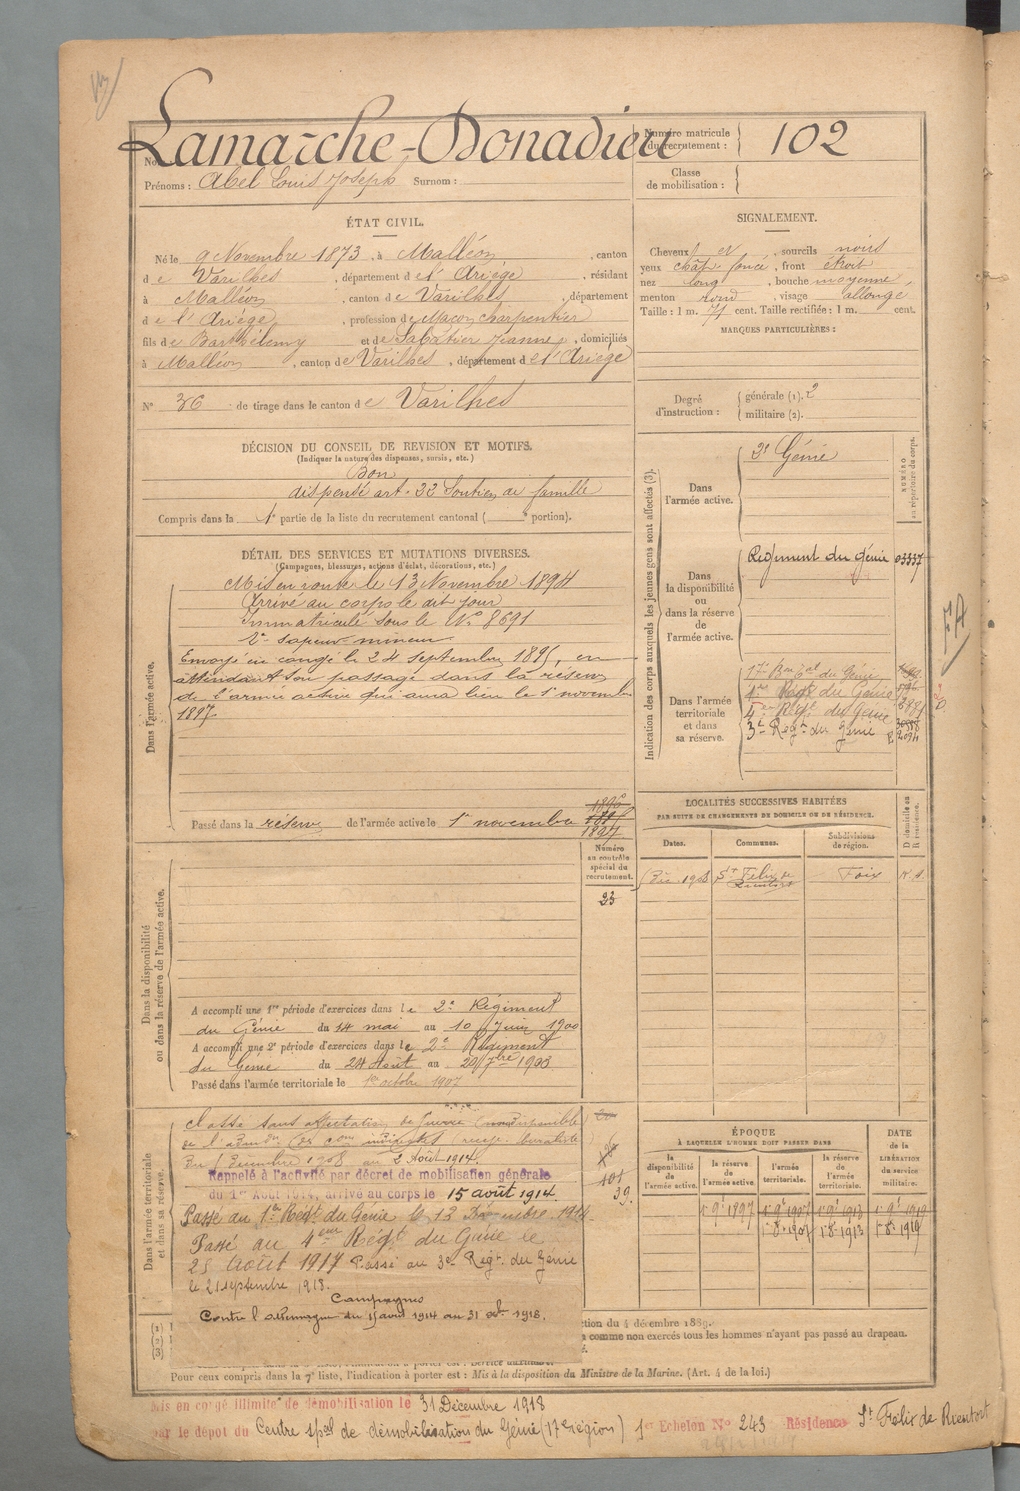 Nom : Lamarche-Donadieu
Prénoms : Abel Louis Joseph Surnom :
Numéro matricule du recrutement : 102
Classe de mobilisation :
ÉTAT CIVIL.
Né le 9 Novembre 1873, à Malléon, canton
de Varilhes, département de l'Ariège, résidant
à Malléon, canton de Varilhes, département
de l'Ariège, profession de Maçon charpentier
fils de Barthélemy et de Sabatier Jeanne, domiciliés
à Malléon, canton de Varilhes, département de l'Ariège
N° 36 de tirage dans le canton de Varilhes
SIGNALEMENT.
Cheveux et, sourcils noirs
yeux chât. foncé, front étroit
nez long, bouche moyenne,
menton rond, visage allongé
Taille : 1 m. 71 cent. Taille rectifiée : 1 m. cent.
MARQUES PARTICULIÈRES :
Degré d'instruction : générale (1). 2
militaire (2).
DÉCISION DU CONSEIL DE REVISION ET MOTIFS.
(Indiquer la nature des dispenses, sursis, etc.)
Bon
dispensé art. 22 Soutien de famille
Compris dans la 1e partie de la liste du recrutement cantonal ( e portion).
DÉTAIL DES SERVICES ET MUTATIONS DIVERSES.
(Campagnes, blessures, actions d'éclat, décorations, etc.)
Dans l'armée active.
Mis en route le 13 Novembre 1894
Arrivé au corps le dit jour
Immatriculé sous le N° 8691
2e sapeur mineur
Envoyé en congé le 24 septembre 1895, en
attendant son passage dans la réserve
de l'armée active qui aura lieu le 1er novembre
1897
Passé dans la réserve de l'armée active le 1er novembre 1897
Indication des corps auxquels les jeunes gens sont affectés (3).
NUMÉRO au répertoire du corps.
Dans l'armée active.
2e Génie
Dans la disponibilité ou dans la réserve de l'armée active.
Régiment du génie 03337
Dans l'armée territoriale et dans sa réserve.
17e Bon tal du Génie
1er Regt du Génie
4eme Régt du Génie
3e Regt du Génie
LOCALITÉS SUCCESSIVES HABITÉES
PAR SUITE DE CHANGEMENTS DE DOMICILE OU DE RÉSIDENCE.
Dates. Communes. Subdivisions de région. Domicile ou Résidence.
Déc 1908 St Felix de Rieutort Foix
Numéro au contrôle spécial du recrutement.
23
Dans la disponibilité ou dans la réserve de l'armée active.
A accompli une 1re période d'exercices dans le 2e Régiment
du Génie du 14 mai au 10 Juin 1900
A accompli une 2e période d'exercices dans le 2e Régiment
du Génie du 24 Août au 20 7bre 1903
Passé dans l'armée territoriale le 1er octobre 1907
Dans l'armée territoriale et dans sa réserve.
Classé sans affectation de guerre
du décembre 1908 au 2 Août 1914
Rappelé à l'activité par décret de mobilisation générale
du 1er Août 1914, arrivé au corps le 15 août 1914
Passé au 1er Régt du Génie le 13 Décembre 1914
Passé au 4eme Régt du Génie le
25 Août 1917 Passé au 3e Regt du Génie
le 21 septembre 1918.
Campagnes
Contre l'allemagne du 15 août 1914 au 31 1918.
ÉPOQUE
À LAQUELLE L'HOMME DOIT PASSER DANS
la disponibilité de l'armée active. la réserve de l'armée active. l'armée territoriale. la réserve de l'armée territoriale.
DATE de la LIBÉRATION du service militaire.
1er 9e 1897 1er 9e 1907 1er 9e 1913 1er 9e 1919
1er 8e 1907 1er 8e 1913 1er 8e 1919
ction du 4 décembre 1889.
a comme non exercés tous les hommes n'ayant pas passé au drapeau.
Pour ceux compris dans la 7e liste, l'indication à porter est : Mis à la disposition du Ministre de la Marine. (Art. 4 de la loi.)
Mis en congé illimité de démobilisation le 31 Décembre 1918
par le dépôt du Centre spal de démobilisation du Génie (17e région) 1er Echelon N° 243 Résidence St Félix de Rieutort